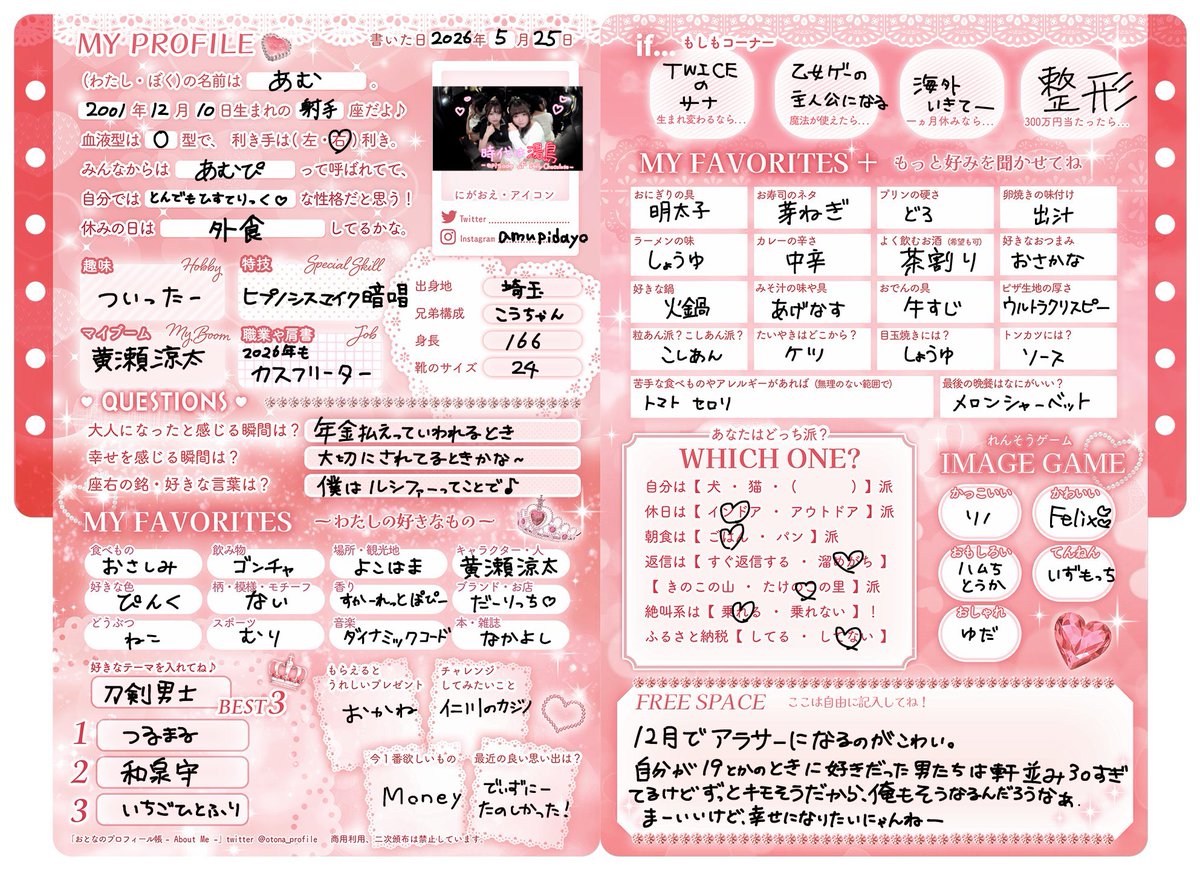 MY PROFILE
書いた日 2026年 5月 25日
(わたし・ぼく)の名前は あむ 。
2001年 12月 10日生まれの 射手 座だよ♪
血液型は O 型で、 利き手は(左・右)利き。
みんなからは あむぴ って呼ばれてて、
自分では とんでもひすてりっく♡ な性格だと思う!
休みの日は 外食 してるかな。
にがおえ・アイコン
Twitter
Instagram amupidayo
趣味 Hobby
ついったー
特技 Special Skill
ヒプノシスマイク暗唱
マイブーム My Boom
黄瀬涼太
職業や肩書 Job
2026年も
カスフリーター
出身地 埼玉
兄弟構成 こうちゃん
身長 166
靴のサイズ 24
QUESTIONS
大人になったと感じる瞬間は? 年金払えっていわれるとき
幸せを感じる瞬間は? 大切にされてるときかな~
座右の銘・好きな言葉は? 僕はルシファーってことで♪
MY FAVORITES ~わたしの好きなもの~
食べもの おさしみ
飲み物 ゴンチャ
場所・観光地 よこはま
キャラクター・人 黄瀬涼太
好きな色 ぴんく
柄・模様・モチーフ ない
香り すかーれっとぽぴー
ブランド・お店 だーりっち♡
どうぶつ ねこ
スポーツ むり
音楽 ダイナミックコード
本・雑誌 なかよし
好きなテーマを入れてね♪
刀剣男士
BEST3
1 つるまる
2 和泉守
3 いちごひとふり
もらえると
うれしいプレゼント
おかね
チャレンジ
してみたいこと
仁川のカジノ
今1番欲しいもの
Money
最近の良い思い出は?
でぃずにー
たのしかった!
「おとなのプロフィール帳 - About Me -」twitter @otona_profile 商用利用、二次頒布は禁止しています。
if... もしもコーナー
TWICE
の
サナ
生まれ変わるなら…
乙女ゲーの
主人公になる
魔法が使えたら…
海外
いきてー
一ヵ月休みなら…
整形
300万円当たったら…
MY FAVORITES + もっと好みを聞かせてね
おにぎりの具 明太子
お寿司のネタ 芽ねぎ
プリンの硬さ どろ
卵焼きの味付け 出汁
ラーメンの味 しょうゆ
カレーの辛さ 中辛
よく飲むお酒(希望も可) 茶割り
好きなおつまみ おさかな
好きな鍋 火鍋
みそ汁の味や具 あげなす
おでんの具 牛すじ
ピザ生地の厚さ ウルトラクリスピー
粒あん派?こしあん派? こしあん
たいやきはどこから? ケツ
目玉焼きには? しょうゆ
トンカツには? ソース
苦手な食べものやアレルギーがあれば(無理のない範囲で)
トマト セロリ
最後の晩餐はなにがいい?
メロンシャーベット
あなたはどっち派?
WHICH ONE?
自分は【 犬 ・ 猫 ・( )】派
休日は【 インドア ・ アウトドア 】派
朝食は【 ごはん ・ パン 】派
返信は【 すぐ返信する ・ 溜めがち 】
【 きのこの山 ・ たけのこの里 】派
絶叫系は【 乗れる ・ 乗れない 】!
ふるさと納税【 してる ・ してない 】
れんそうゲーム
IMAGE GAME
かっこいい リノ
かわいい Felix
おもしろい ハムち
とうか
てんねん いずもっち
おしゃれ ゆだ
FREE SPACE ここは自由に記入してね!
12月でアラサーになるのがこわい。
自分が19とかのときに好きだった男たちは軒並み30すぎ
てるけどずっとキモそうだから、俺もそうなるんだろうなぁ
まーいいけど、幸せになりたいにゃんねー